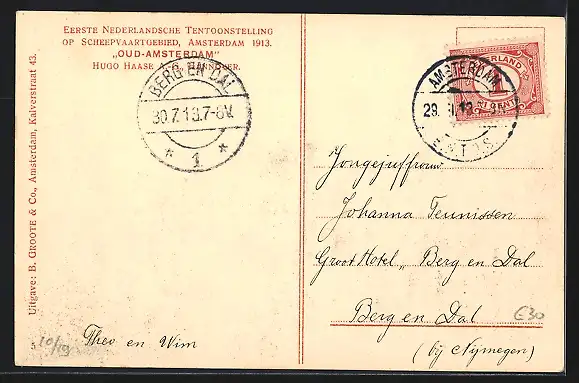 Eerste Nederlandsche Tentoonstelling
op Scheepvaartgebied, Amsterdam 1913.
„OUD-AMSTERDAM"
Hugo Haase A.G., Hannover.
BERG EN DAL
30.7.13.7-8V.
* 1 *
Uitgave: B. Groote & Co., Amsterdam, Kalverstraat 43.
Theo en Wim
10/19
NEDERLAND
1
CENT
AMSTERDAM
29.
13
E.N.T.O.S.
Jongejuffrouw
Johanna Teunissen
Groot Hotel „Berg en Dal
Berg en Dal
(bij Nijmegen)
€30